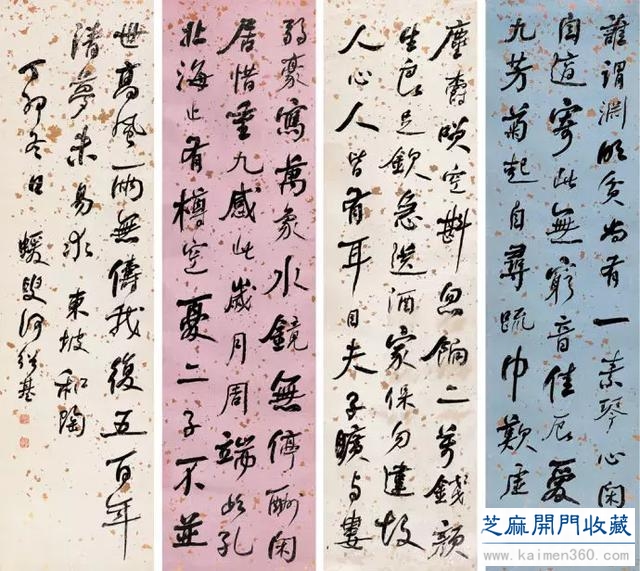 誰謂淵明貧尚有一素琴心閑
自適寄此無窮音佳辰愛
九芳菊起自尋疏巾歎虛
塵爵笑空斟忽餉二萬錢顏
生良足欽急送酒家保勿違故
人心人皆有耳目夫子曠与婁
弱豪寫萬象水鏡無停酬閑
居惜重九感此歲月周端如孔
北海止有樽空憂二子不並
世高風兩無儔我後五百年
清夢未易求 東坡和陶
丁卯冬日 蝯叟何紹基
芝麻開門收藏
www.kaimen360.com